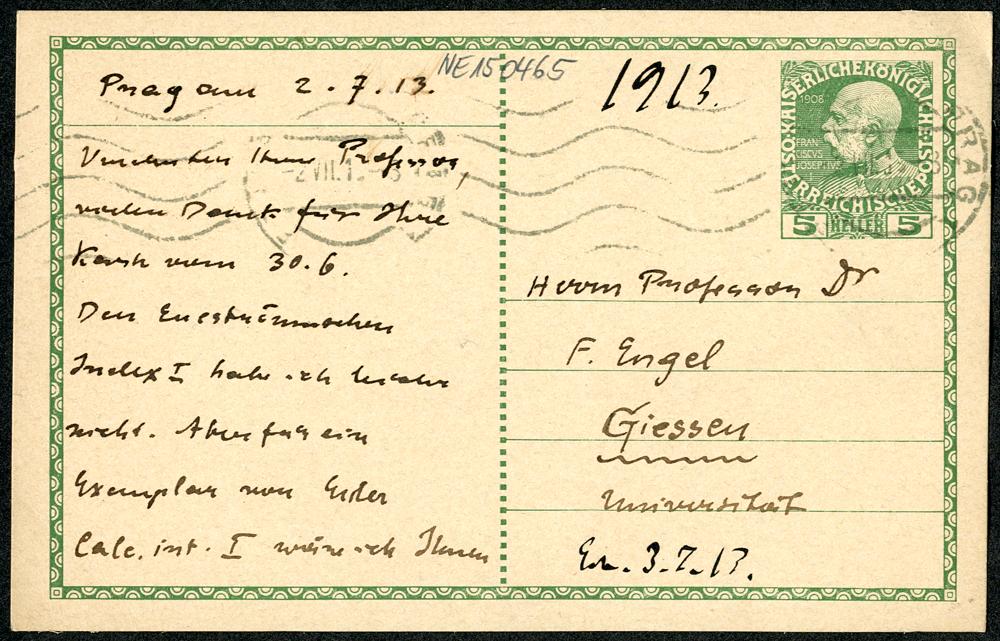 Prag am 2.7.13.
NE150465
1913.
Verehrter Herr Professor,
vielen Dank für Ihre
Karte vom 30.6.
Den Eneströmschen
Index I habe ich leider
nicht. Aber für ein
Exemplar von Euler
Calc. int. I wäre ich Ihnen
KAISERLICHEKÖNIGLICHE
ÖSTERREICHISCHEPOST
1908
FRAN
CISCVS
JOSEPHVS
5 HELLER 5
PRAG
Herrn Professor Dr
F. Engel
Giessen
Universität
3.7.13.